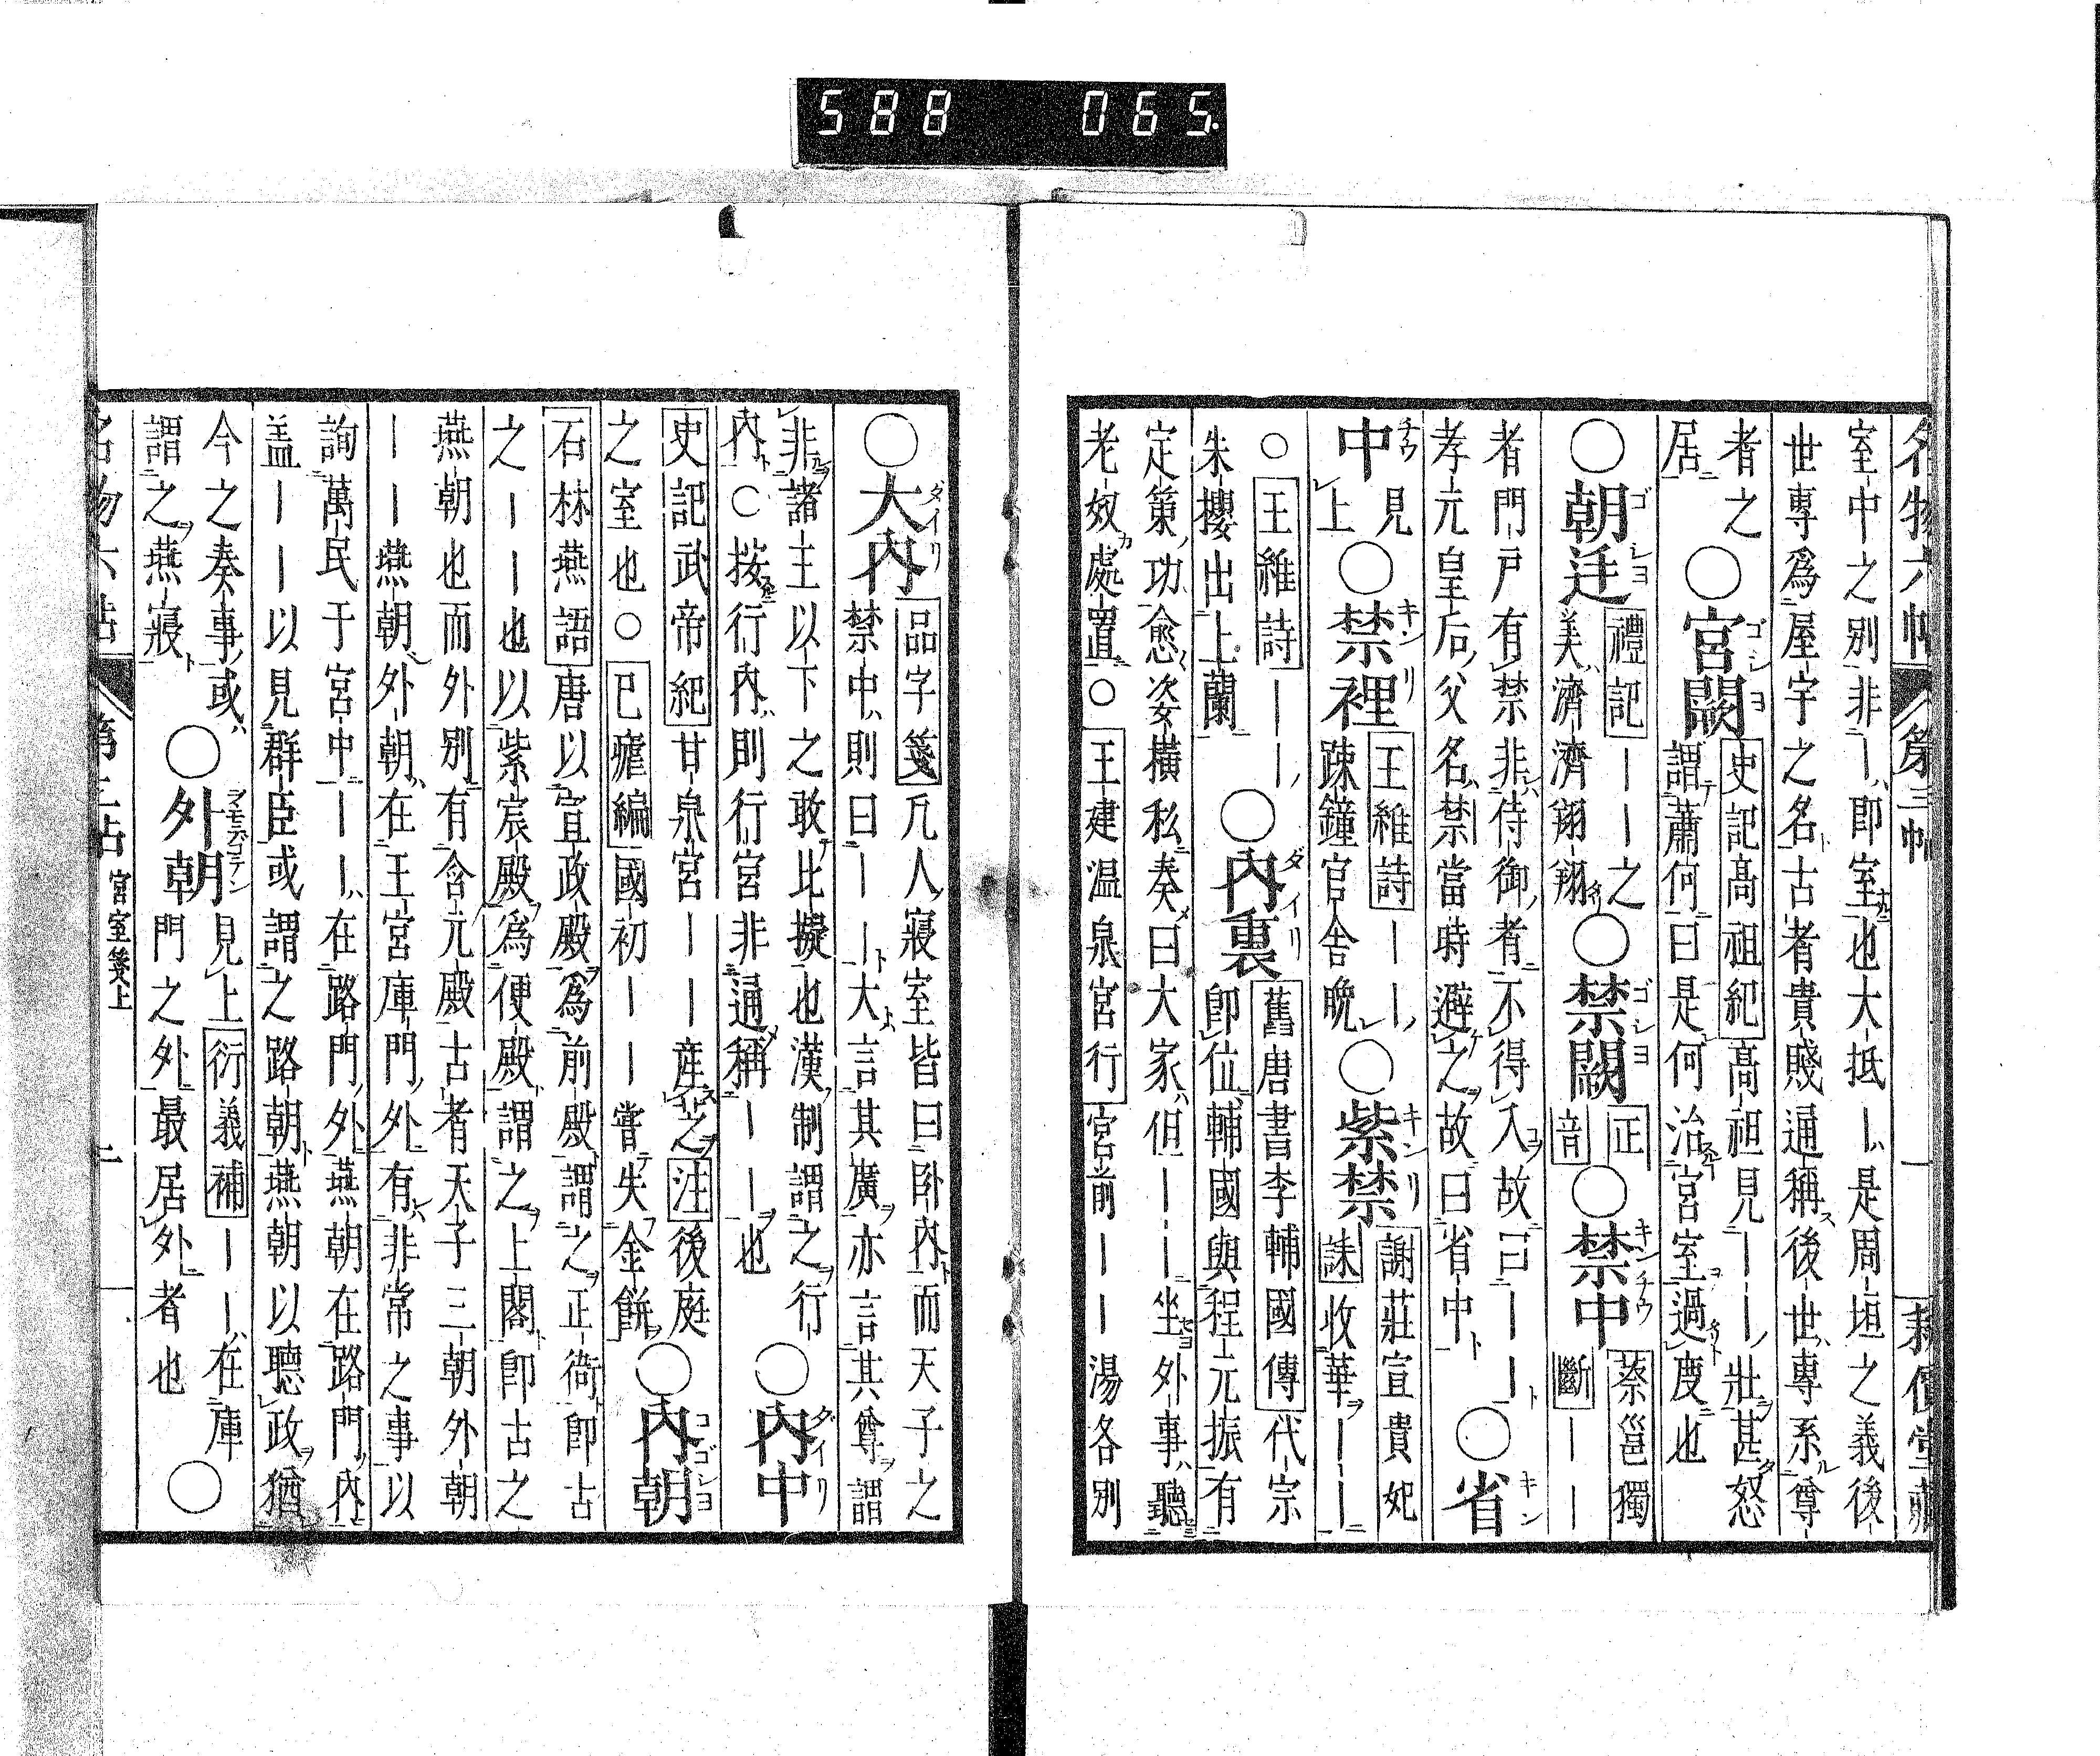 588 065.
名物六帖 第三帖 一 奎價堂藏
室中之別非——即室也大抵——是周垣之義後
世專爲屋宇之名古者貴賤通稱後世專系尊
者之
居
○宮闕 ゴシヨ
史記高祖紀高祖見——壯甚怒
謂蕭何曰是何治宮室過度也
○朝廷 ゴシヨ
禮記——之
美濟濟翔翔
○禁闕 ゴシヨ
正
音
○禁中 キンチウ
蔡邕獨
斷——
者門戸有禁非侍御者不得入故曰——
孝元皇后父名禁當時避之故曰省中
○省 キン
中 チウ
見
上
○禁裡 キンリ
王維詩——
疎鐘官舍晩
○紫禁 キンリ
謝莊宣貴妃
誄收華——
○王維詩——
朱櫻出上蘭
○內裏 ダイリ
舊唐書李輔國傳代宗
卽位輔國與程元振有
定策功愈恣橫私奏曰大家但——坐外事聽
老奴處置○王建温泉宮行宮前——湯各別
○大內 ダイリ
品字箋凡人寢室皆曰卧內而天子之
禁中則曰——大言其廣亦言其尊謂
非諸主以下之敢比擬也漢制謂之行
內○按行內則行宮非通稱——也
○內中 ダイリ
史記武帝紀甘泉宮——産之注後庭
之室也○已瘧編國初——嘗失金餅
○內朝 コゴシヨ
石林燕語唐以宣政殿爲前殿謂之正衙卽古
之——也以紫宸殿爲便殿謂之上閣卽古之
燕朝也而外別有含元殿古者天子三朝外朝
——燕朝外朝在王宮庫門外有非常之事以
詢萬民于宮中——在路門外燕朝在路門內
盖——以見群臣或謂之路朝燕朝以聽政猶
今之奏事或
謂之燕寢
○外朝 シモオゴテン
見上衍義補——在庫
門之外最居外者也
○
名物六帖 第三帖 宮室箋上 二